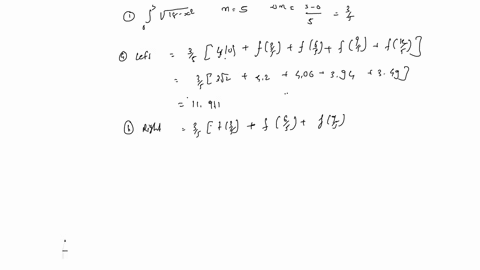 ① ∫₀³ √(18-x²) n=5 Δx = (3-0)/5 = 3/5
ⓐ Left = 3/5 [ f(0) + f(3/5) + f(6/5) + f(9/5) + f(12/5) ]
= 3/5 [ 3√2 + 4.2 + 4.06 + 3.94 + 3.49 ]
= 11.911
ⓑ Right = 3/5 [ f(3/5) + f(6/5) + f(9/5)